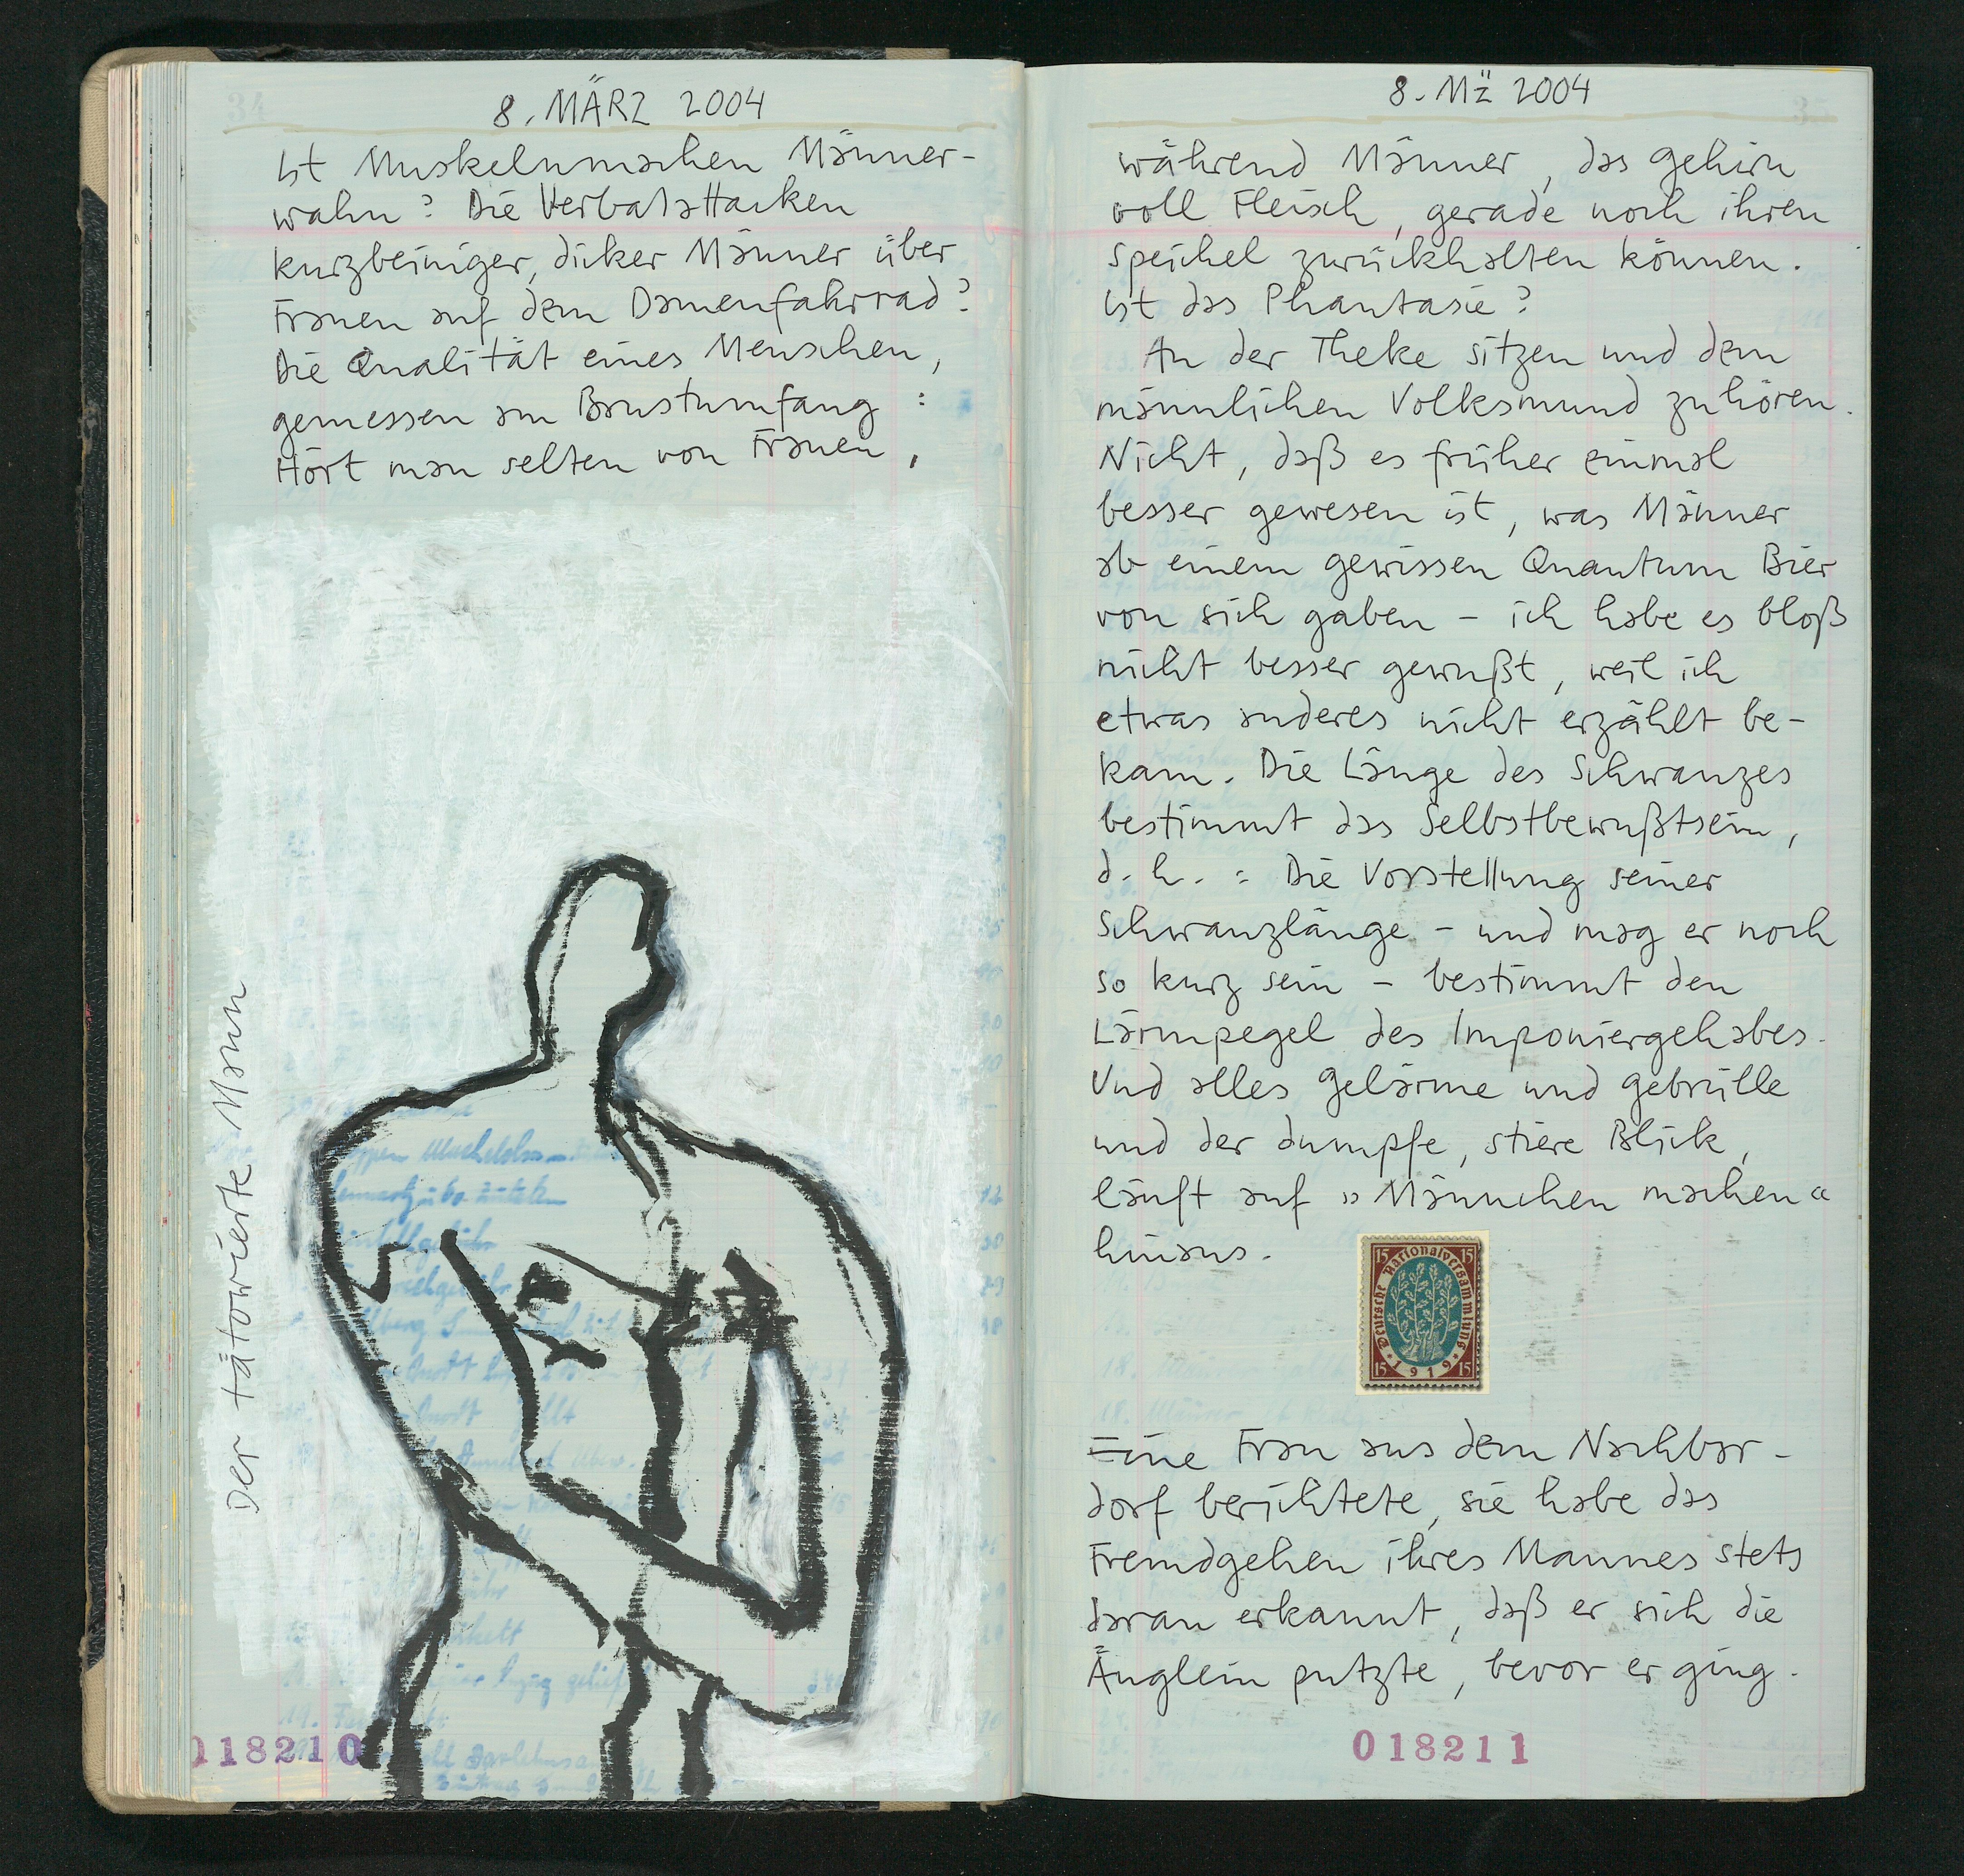 34
8. MÄRZ 2004
Ist Muskelnmachen Männer-
wahn? Die Verbalattacken
kurzbeiniger, dicker Männer über
Frauen auf dem Damenfahrrad?
Die Qualität eines Menschen,
gemessen am Brustumfang :
Hört man selten von Frauen,
Der tätowierte Mann
018210
35
8. Mz̈ 2004
während Männer, das Gehirn
voll Fleisch, gerade noch ihren
Speichel zurückhalten können.
Ist das Phantasie?
An der Theke sitzen und dem
männlichen Volksmund zuhören.
Nicht, daß es früher einmal
besser gewesen ist, was Männer
ab einem gewissen Quantum Bier
von sich gaben – ich habe es bloß
nicht besser gewußt, weil ich
etwas anderes nicht erzählt be-
kam. Die Länge des Schwanzes
bestimmt das Selbstbewußtsein,
d. h. : Die Vorstellung seiner
Schwanzlänge – und mag er noch
so kurz sein – bestimmt den
Lärmpegel des Imponiergehabes.
Und alles Gelärme und Gebrülle
und der dumpfe, stiere Blick,
läuft auf »Männchen machen«
hinaus.
15 Deutsche Nationalversammlung 15
15 * 1919 * 15
Eine Frau aus dem Nachbar-
dorf berichtete, sie habe das
Fremdgehen ihres Mannes stets
daran erkannt, daß er sich die
Äuglein putzte, bevor er ging.
018211